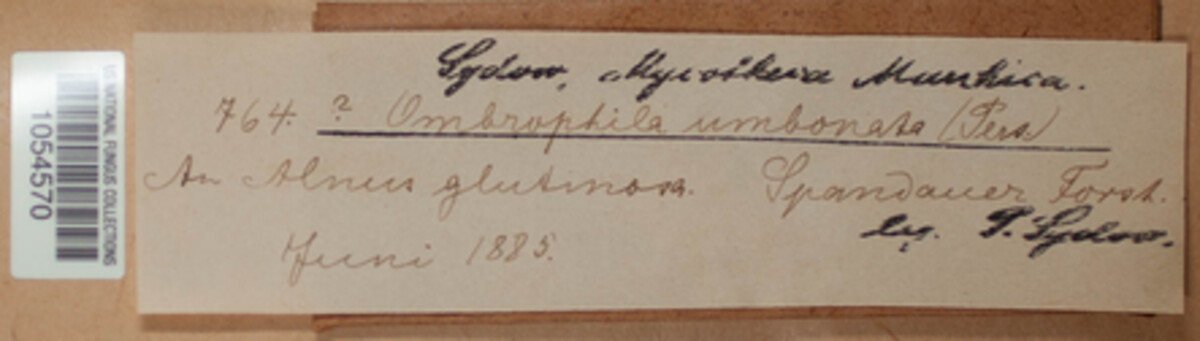 US NATIONAL FUNGUS COLLECTIONS
1054570
Sydow, Mycotheca Marchica.
764. ? Ombrophila umbonata (Pers.)
An Alnus glutinosa. Spandauer Forst.
leg. P. Sydow.
Juni 1885.